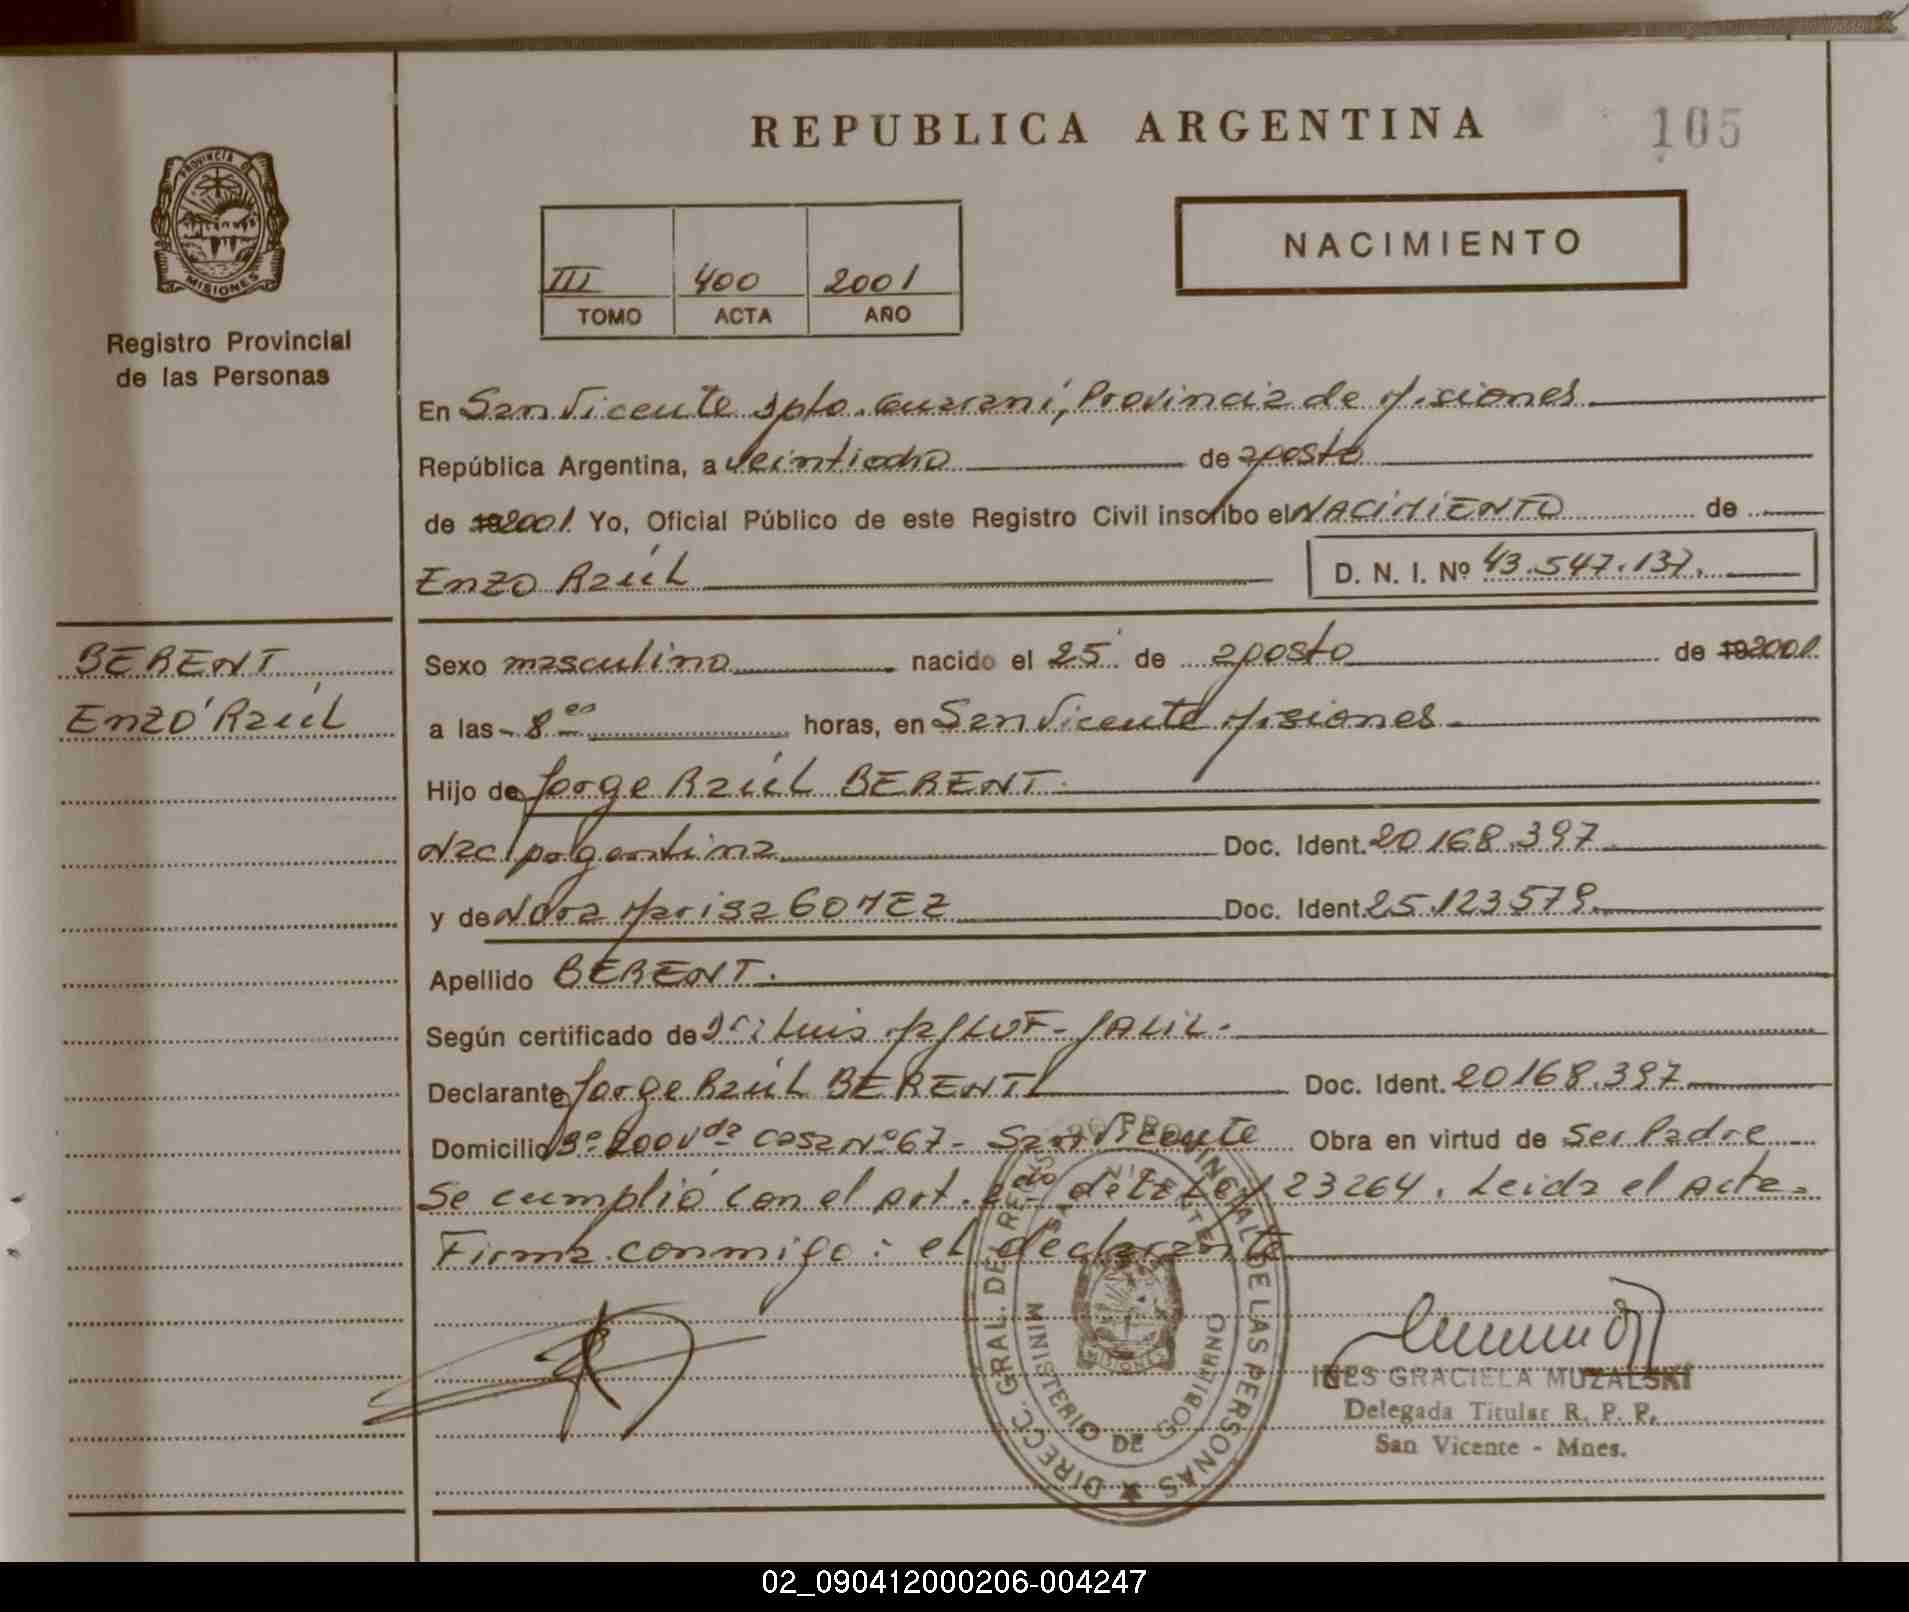 REPUBLICA ARGENTINA
105
PROVINCIA DE
MISIONES
Registro Provincial
de las Personas
NACIMIENTO
III 400 2001
TOMO ACTA AÑO
En San Vicente Dpto. Guaraní, Provincia de Misiones
República Argentina, a veintiocho de agosto
de 192001. Yo, Oficial Público de este Registro Civil inscribo el NACIMIENTO de
Enzo Raúl
D. N. I. Nº 43.547.137.
BERENT
Enzo Raúl
Sexo masculino nacido el 25 de agosto de 192001.
a las - 8 horas, en San Vicente Misiones -
Hijo de Jorge Raúl BERENT.
Nac argentina Doc. Ident. 20168.397
y de Nora Marisa GOMEZ Doc. Ident. 25.123.579.
Apellido BERENT.
Según certificado de Dr. Luis JALIL-
Declarante Jorge Raúl BERENT Doc. Ident. 20168.397
Domicilio Bº 200 Vdas Casa Nº 67- San Vicente Obra en virtud de ser Padre
Se cumplió con el art. de la Ley 23264. Leida el acta
Firma conmigo: el declarante
DIRECC. GRAL. DEL REGISTRO PROVINCIAL DE LAS PERSONAS
SAN VICENTE
MISIONES
MINISTERIO DE GOBIERNO
INES GRACIELA MUZALSKI
Delegada Titular R. P. P.
San Vicente - Mnes.
02_090412000206-004247